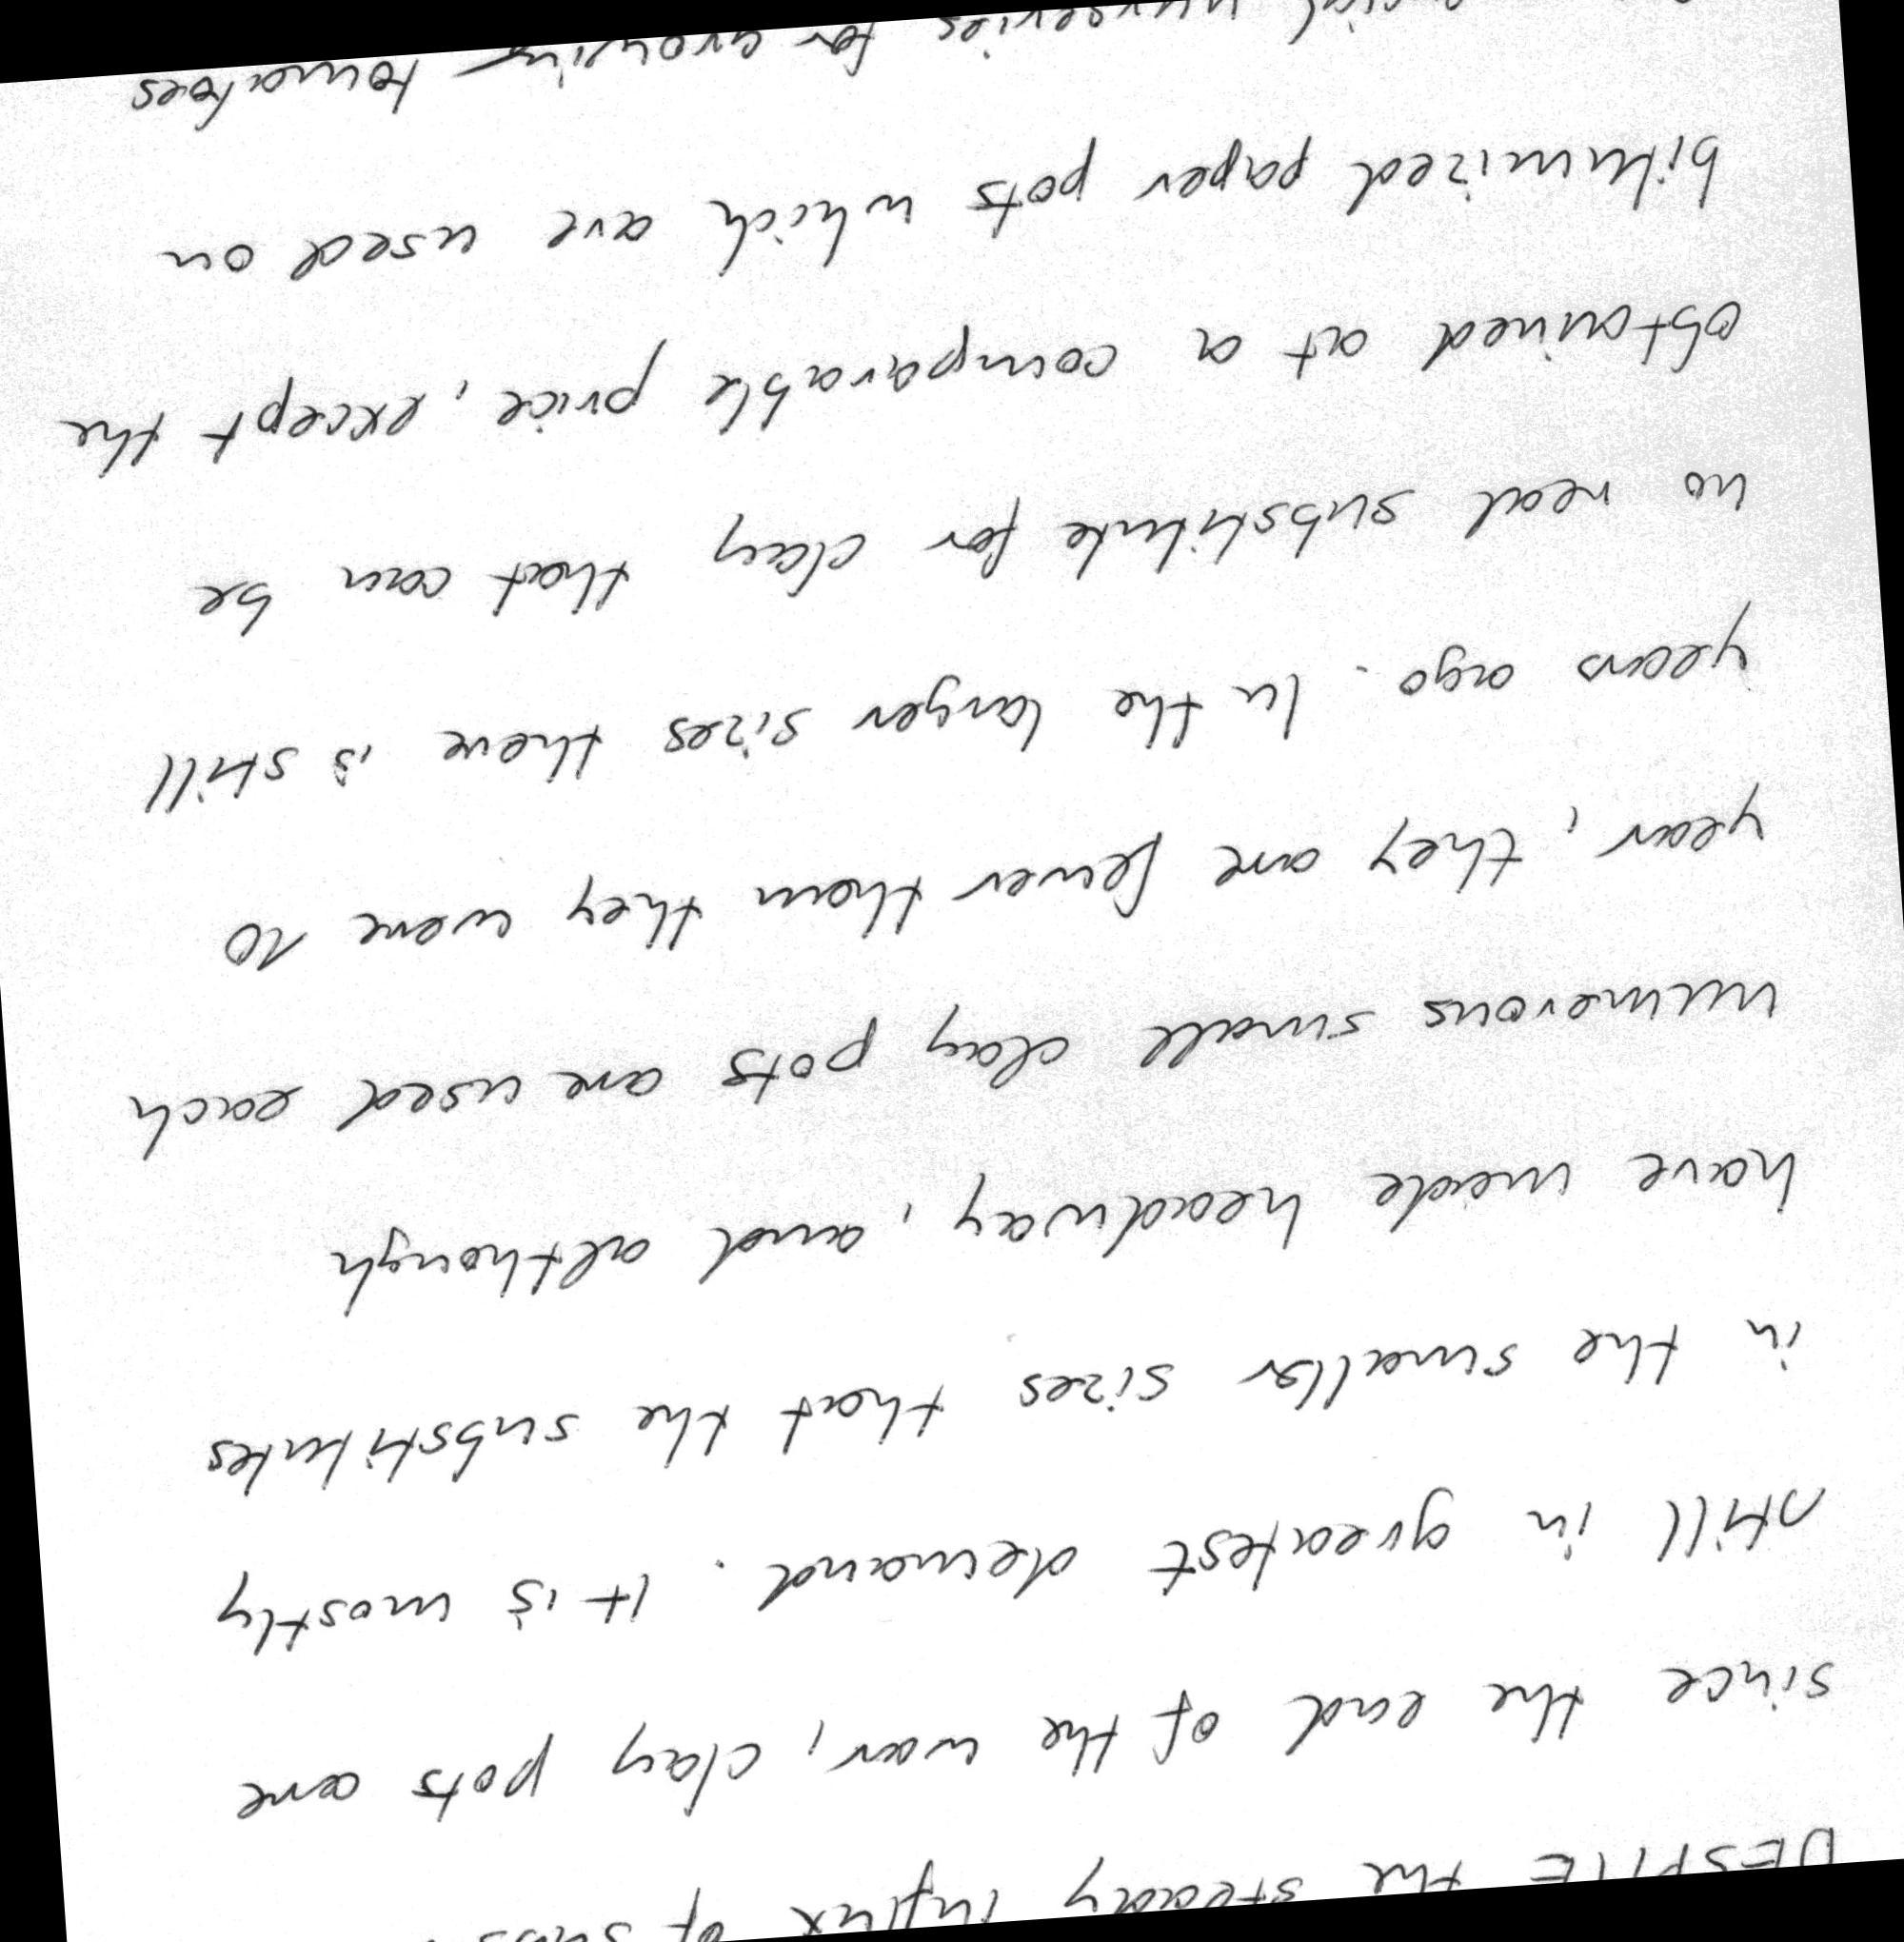 DESPITE the steady influx of
since the end of the war, clay pots are
still in greatest demand. It is mostly
in the smaller sizes that the substitutes
have made headway, and although
numerous small clay pots are used each
year, they are fewer than they were 10
years ago. In the larger sizes there is still
no real substitute for clay that can be
obtained at a comparable price, except the
bitumized paper pots which are used on
nurseries for growing tomatoes